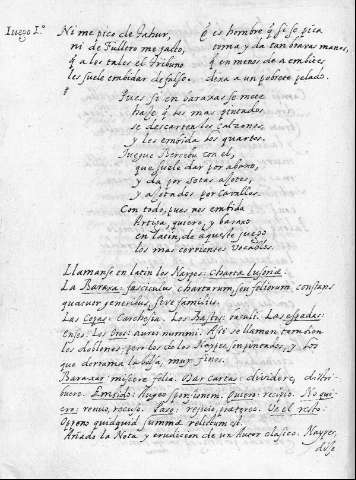 Juego 1.º
Ni me pico de Tahur,
ni de Fullero me jacto,
q̃ a los tales el Tribuno
les suele embidar de falso.
q̃ es hombre q̃ si se pica
toma y da tan bravas manos,
q̃ en menos de a embites,
dexa a un pobrete pelado.
Pues si en baraxas se mete
hasse q̃ los mas pintados
se descarten los calzones,
y les embida los quartos.
Juegue con el,
que suele dar por abaxo,
y da por sotas açotes,
y açotados por cavallos.
Con todo, pues nos embida
quiero, y baraxo
en latin, de aqueste juego
los mas corrientes vocablos.
Llamanse en latin los Naypes: Charta lusoriæ.
La Baraxa: fasciculus chartarum, seu foliorum constans
quatuor generibus, sive familiis.
Las Copas: Carchesia. Los Bastos: bacilli. Las espadas:
enses. Los Oros: aurei nummi. Assi se llaman tambien
los doblones, por los de los Naypes, y los
que derrama la bolsa, muy finos.
Baraxar: miscere folia. Dar cartas: dividere, distri-
buere. Embido: augeo sponsionem. Quiero: recipio. No qui-
ero: renuo, recuso. Passo: reijcio, prætereo. De el resto:
Oppono quidquid summæ relictum est.
Añado la Nota y erudicion de un Autor clasico. Naypes,
dise